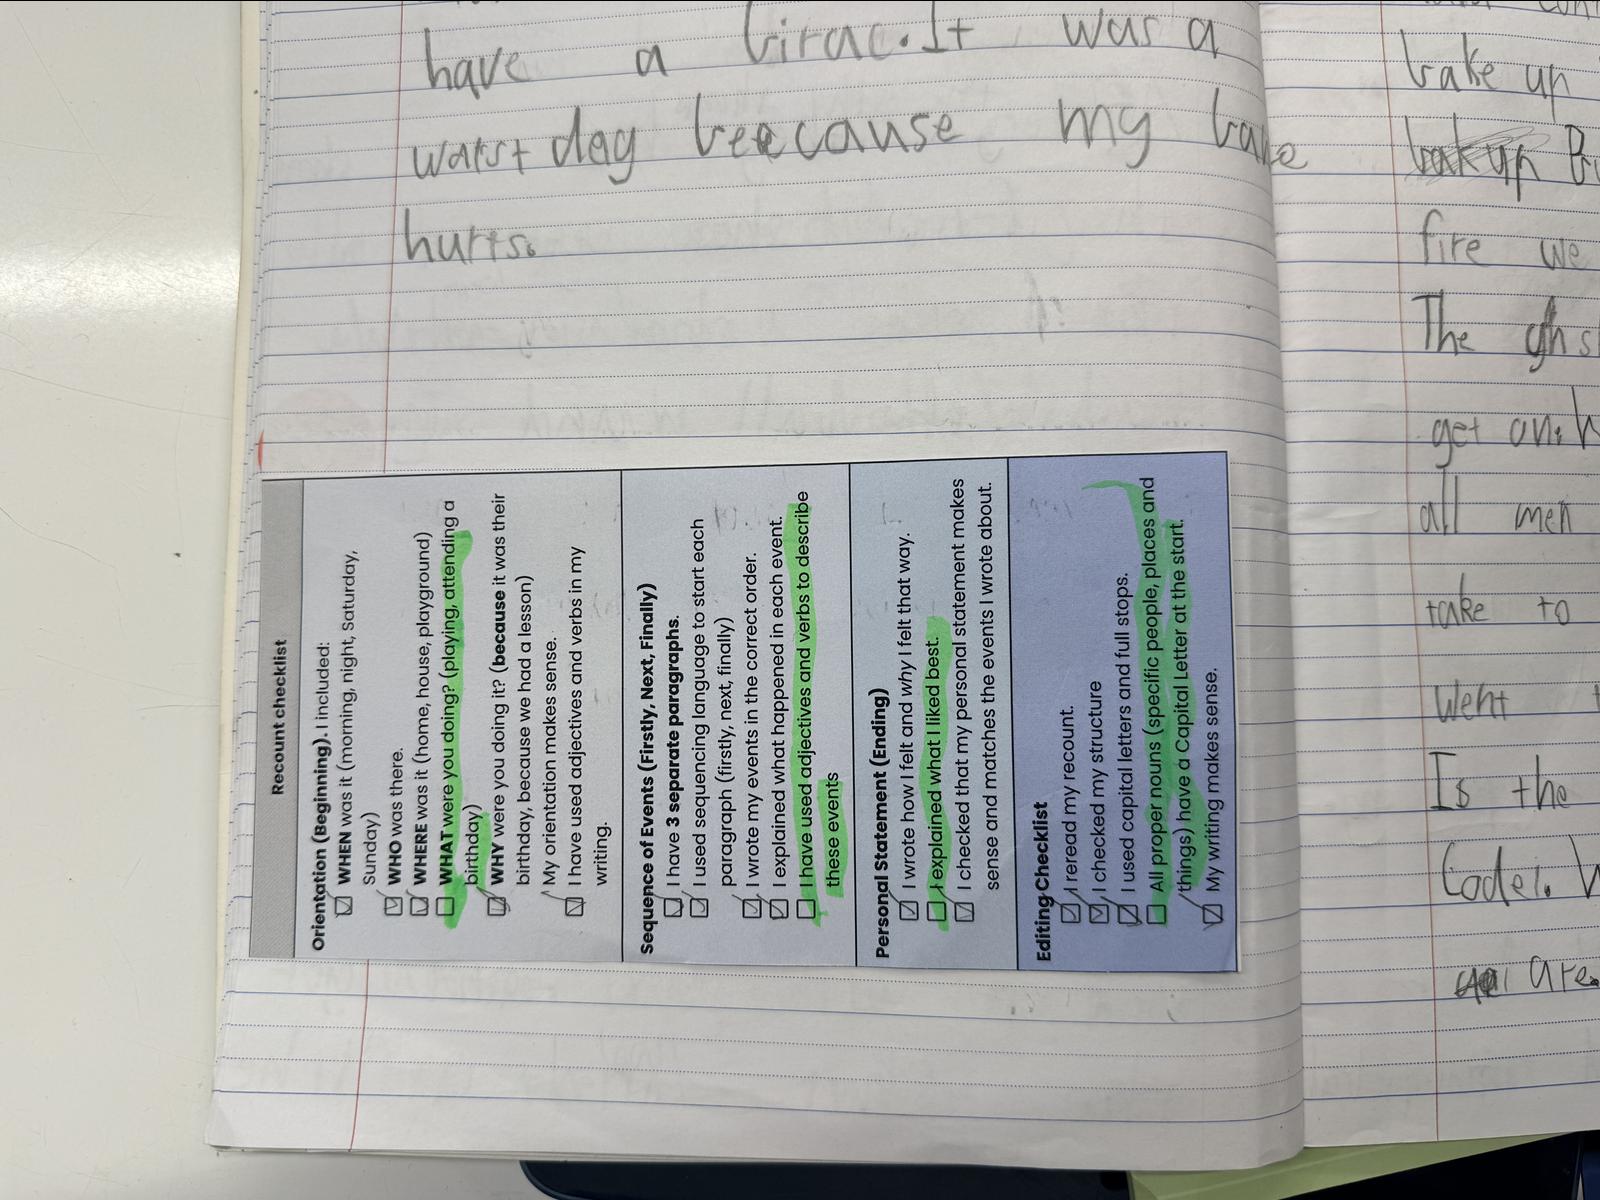 have a birac. It was a
warst day beecause my bake
hurts.
Recount checklist
Orientation (Beginning). I included:
WHEN was it (morning, night, Saturday,
Sunday)
WHO was there.
WHERE was it (home, house, playground)
WHAT were you doing? (playing, attending a
birthday)
WHY were you doing it? (because it was their
birthday, because we had a lesson)
My orientation makes sense.
I have used adjectives and verbs in my
writing.
Sequence of Events (Firstly, Next, Finally)
I have 3 separate paragraphs.
I used sequencing language to start each
paragraph (firstly, next, finally)
I wrote my events in the correct order.
I explained what happened in each event.
I have used adjectives and verbs to describe
these events
Personal Statement (Ending)
I wrote how I felt and why I felt that way.
I explained what I liked best.
I checked that my personal statement makes
sense and matches the events I wrote about.
Editing Checklist
I reread my recount.
I checked my structure
I used capital letters and full stops.
All proper nouns (specific people, places and
things) have a Capital Letter at the start.
My writing makes sense.
bake up
fire we
The
get on.
all men
take to
went
Is the
are.